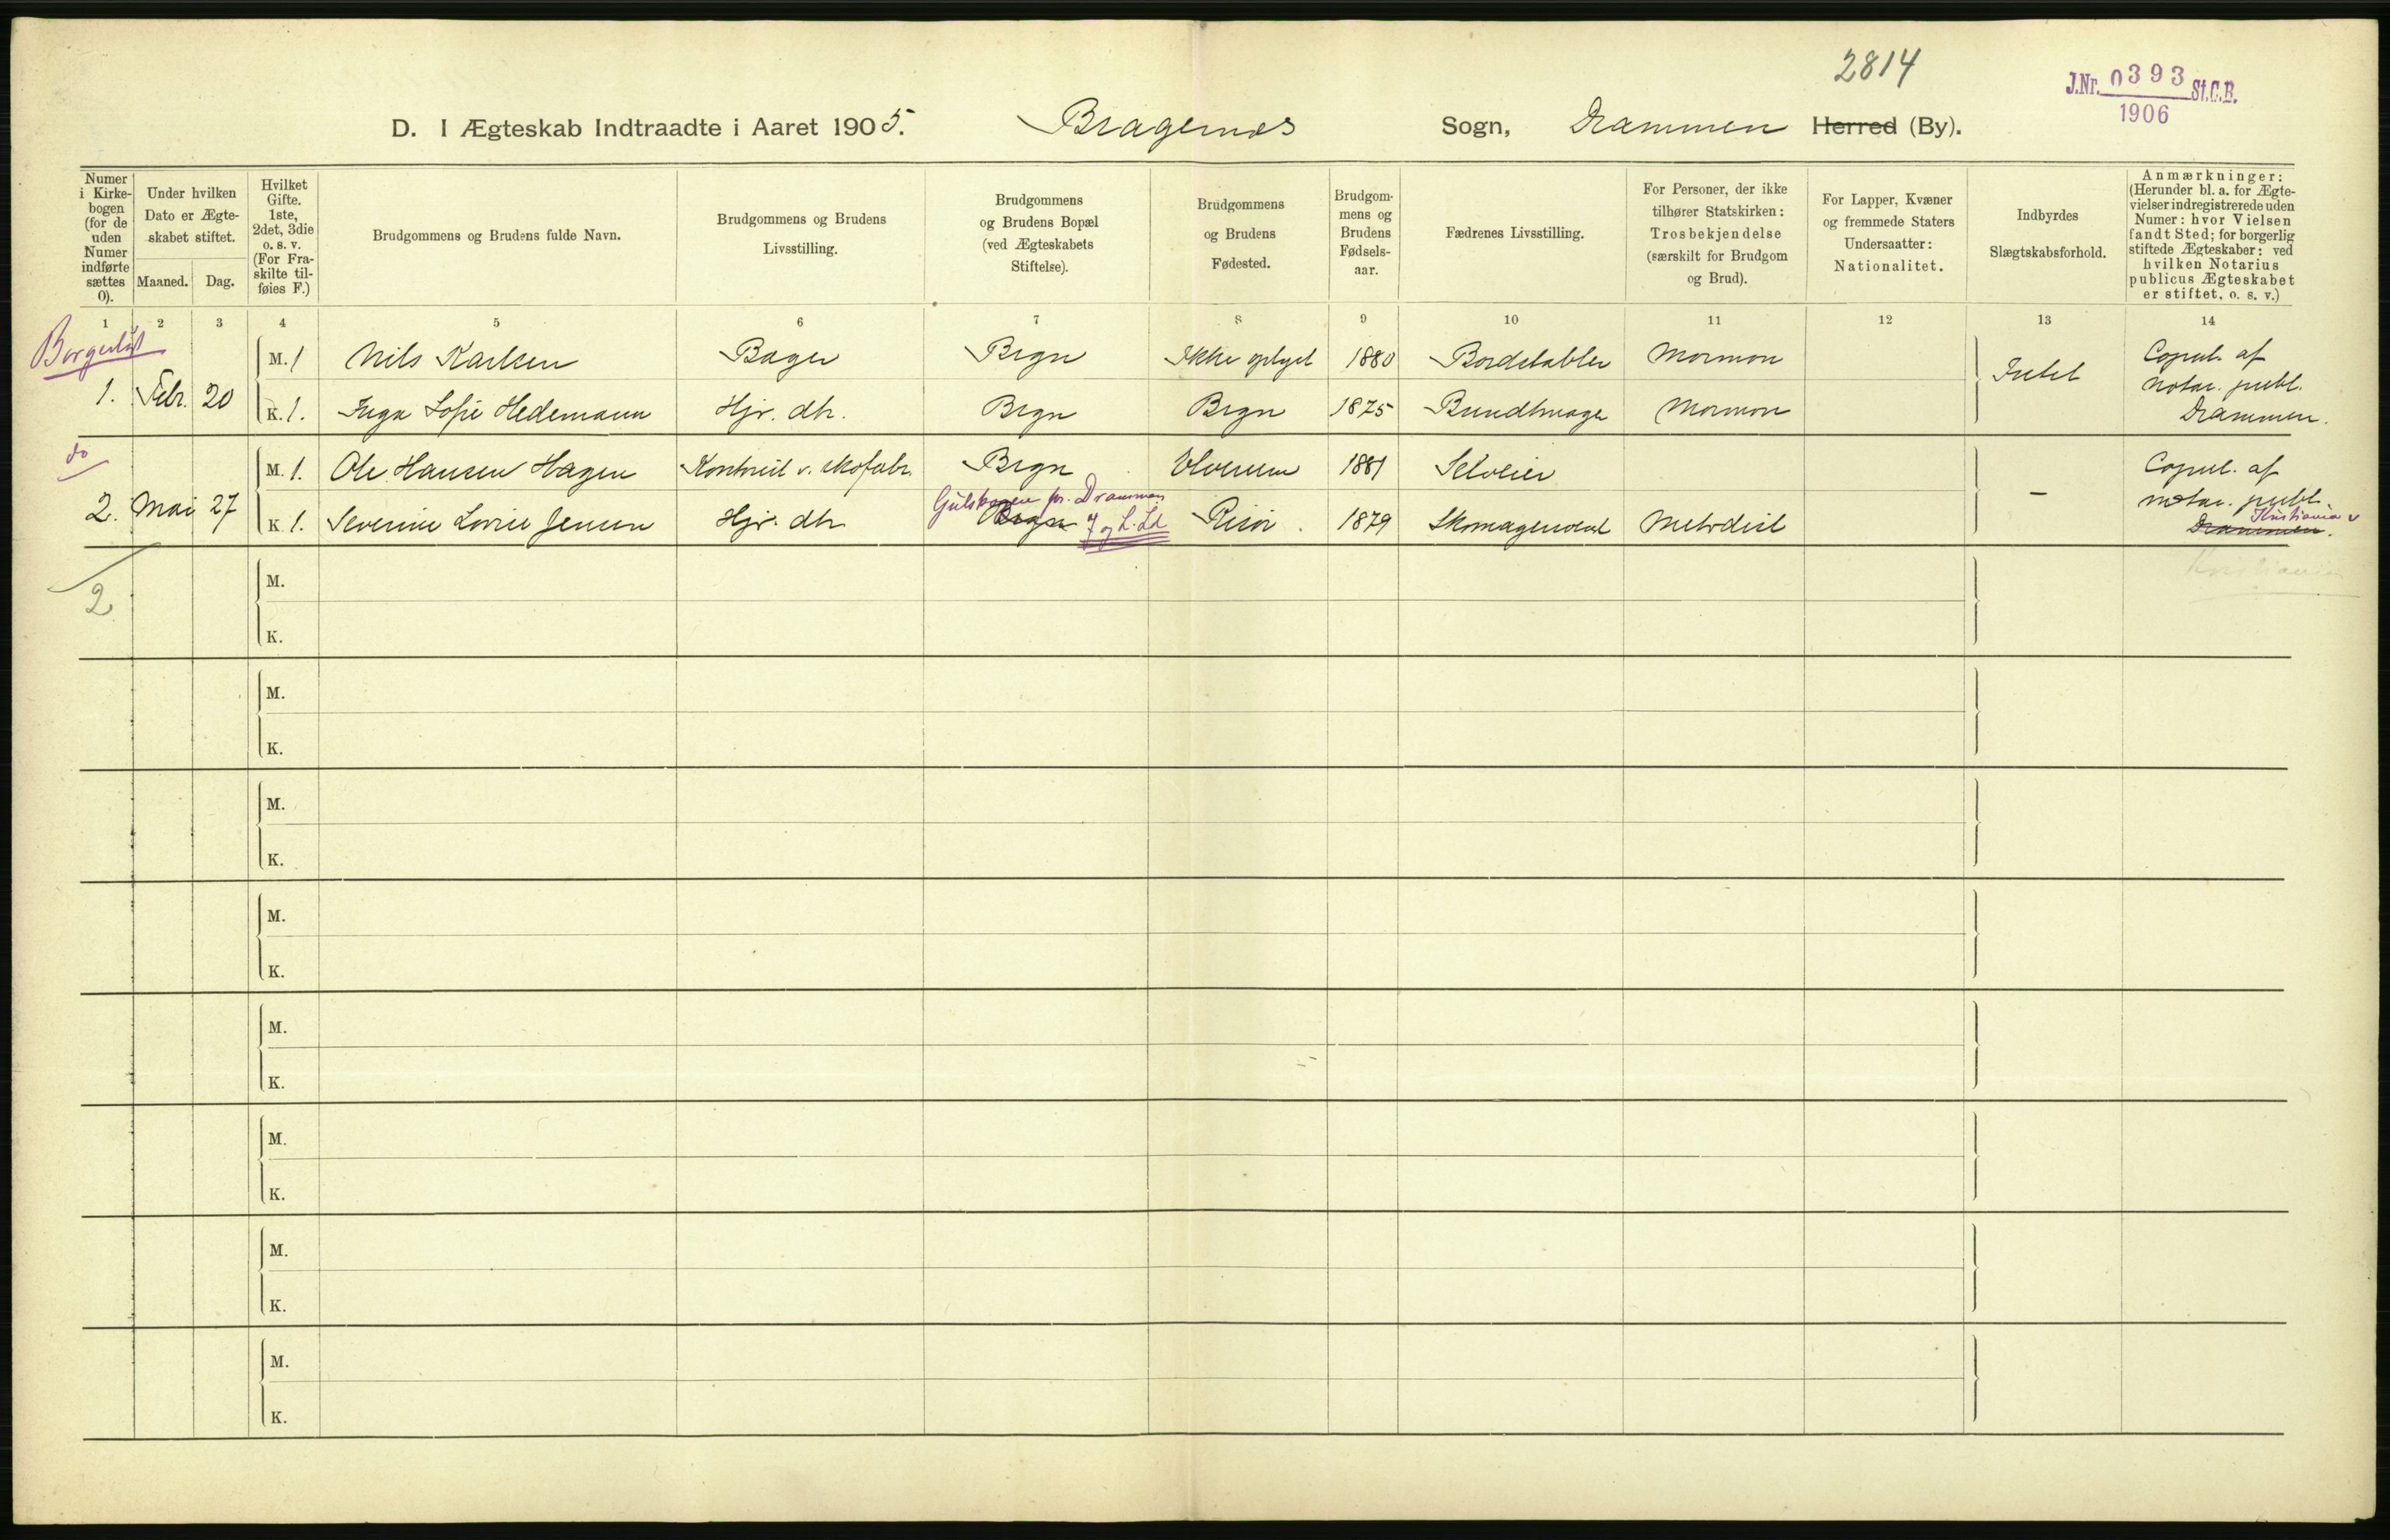 2814
J.Nr. 0393 St.C.B.
1906
D. I Ægteskab Indtraadte i Aaret 1905. Bragernes Sogn, Drammen Herred (By).
Numer i Kirkebogen (for de uden Numer indførte sættes 0).
Under hvilken Dato er Ægteskabet stiftet.
Maaned. Dag.
Hvilket Gifte. 1ste, 2det, 3die o. s. v. (For Fraskilte tilføies F.)
Brudgommens og Brudens fulde Navn.
Brudgommens og Brudens Livsstilling.
Brudgommens og Brudens Bopæl (ved Ægteskabets Stiftelse).
Brudgommens og Brudens Fødested.
Brudgommens og Brudens Fødselsaar.
Fædrenes Livsstilling.
For Personer, der ikke tilhører Statskirken: Trosbekjendelse (særskilt for Brudgom og Brud).
For Lapper, Kvæner og fremmede Staters Undersaatter: Nationalitet.
Indbyrdes Slægtskabsforhold.
Anmærkninger: (Herunder bl. a. for Ægtevielser indregistrerede uden Numer: hvor Vielsen fandt Sted; for borgerlig stiftede Ægteskaber: ved hvilken Notarius publicus Ægteskabet er stiftet, o. s. v.)
1 2 3 4 5 6 7 8 9 10 11 12 13 14
Borgerligt
M. 1 Nils Karlsen Bager Brgn Ikke oplyst 1880 Mormon Copul. af
1. Febr. 20 Intet notar. publ.
K. 1. Inga Sofie Hedemann Hjr. dtr. Brgn Brgn 1875 Bundtmager Mormon Drammen.
do
M. 1. Ole Hansen Hagen v. skofabr. Brgn Elverum 1881 Selveier Copul. af
2. Mai 27 Gulskogen pr. Drammen – notar. publ.
Kristiania
K 1. Severine Lovise Jensen Hjr. dtr Brgn J og L. Ld Risør. 1879 Metodist Drammen.
Kristiania
2
M.
K.
M.
K.
M.
K.
M.
K.
M.
K.
M.
K.
M.
K.
M.
K.